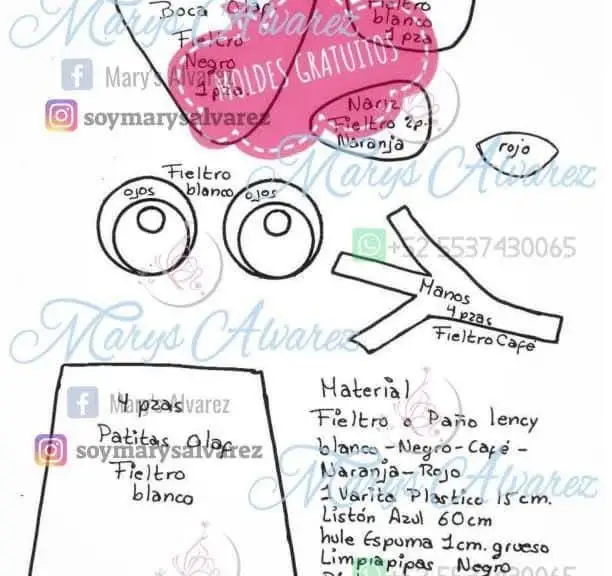 Marys Alvarez
Boca Olaf
Fieltro
Negro
1 pza
Fieltro
blanco
1 pza
MOLDES GRATUITOS
Mary's Alvarez
soymarysalvarez
Nariz
Fieltro 2p.
Naranja
rojo
Marys Alvarez
Fieltro
blanco
ojos
ojos
+52 5537430065
Manos
4 pzas
Fieltro Café
Marys Alvarez
Mary's Alvarez
soymarysalvarez
4 pzas
Patitas Olaf
Fieltro
blanco
Material
Fieltro o Paño lency
blanco-Negro-Café-
Naranja-Rojo
1 Varita Plastico 15 cm.
Listón Azul 60cm
hule Espuma 1cm. grueso
Limpiapipas Negro
Marys Alvarez